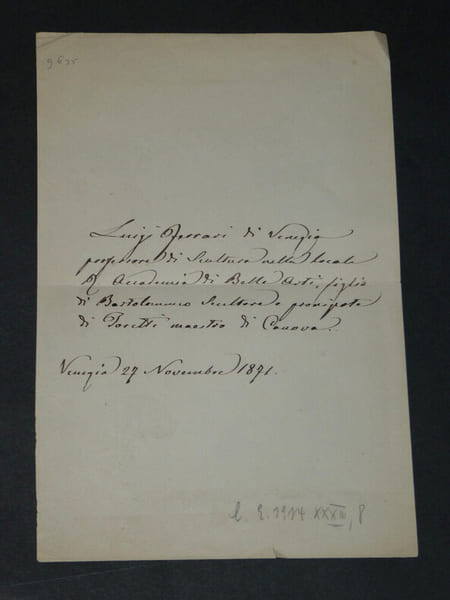 9635
Luigi Ferrari di Venezia
professore di Scultura nella locale
R Accademia di Belle Arti, figlio
di Bartolommeo Scultore e pronipote
di Toretti maestro di Canova.
Venezia 27 Novembre 1871.
1914 XXXIII, 8